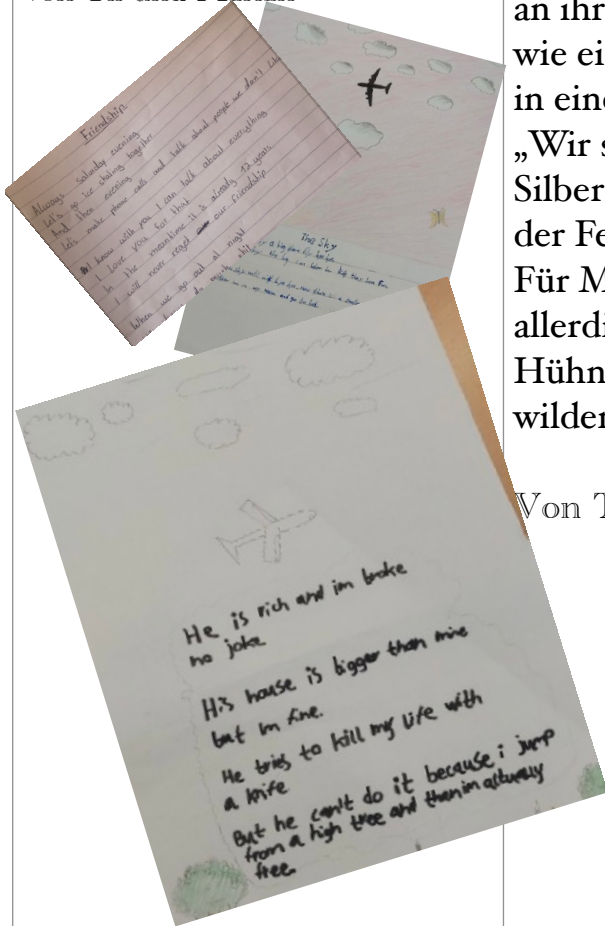 Friendship
Always saturday evening
Let's go ice skating together
And then evening
Let's make phone calls and talk about people we don't like
I know with you I can talk about everything
I love you for that
In the meantime it is already 12 years
I will never regret our friendship
When we go out at night
The Sky
He is rich and im broke
no joke
His house is bigger than mine
but im fine.
He tries to kill my life with
a knife
But he can't do it because i jump
from a high tree and than im acturally
free.
an ihr
wie ei
in eine
„Wir s
Silber
der Fe
Für M
allerdi
Hühn
wilder
Von T